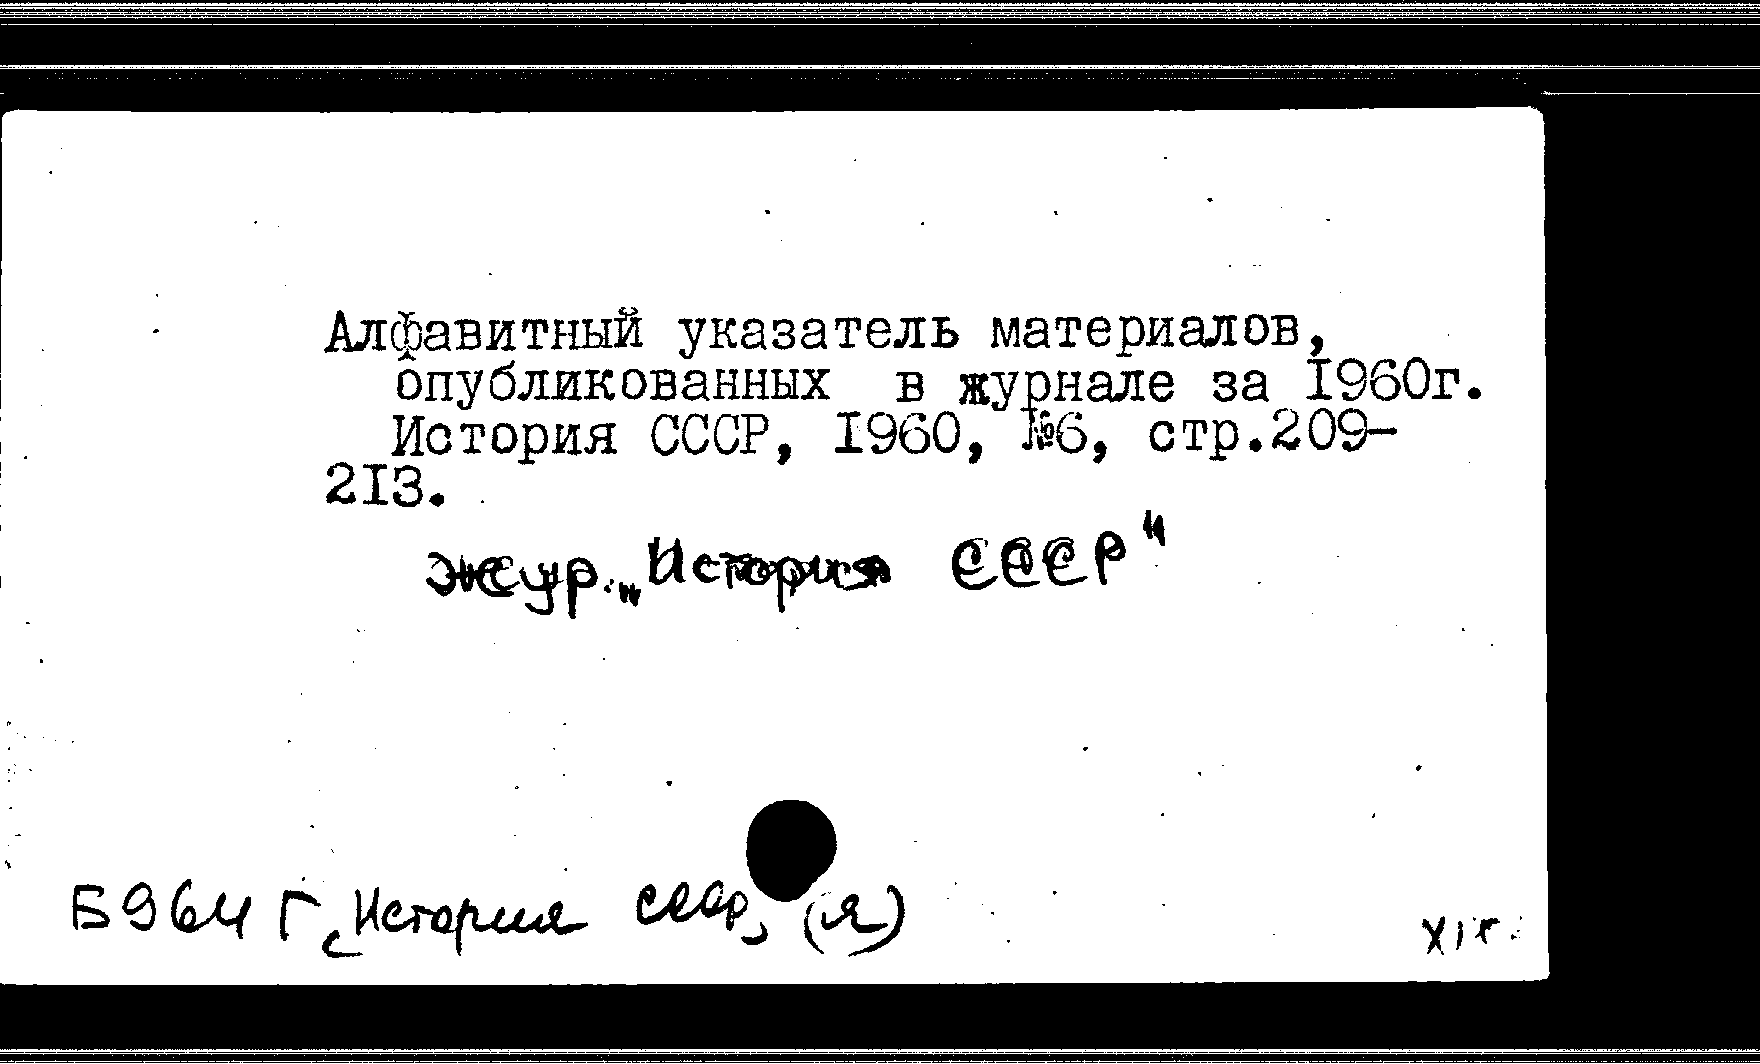 Алфавитный указатель материалов,
опубликованных в журнале за 1960г.
История СССР, 1960, №6, стр.209-
213.
жур. „История СССР"
Б964 Г, История СССР, (я)